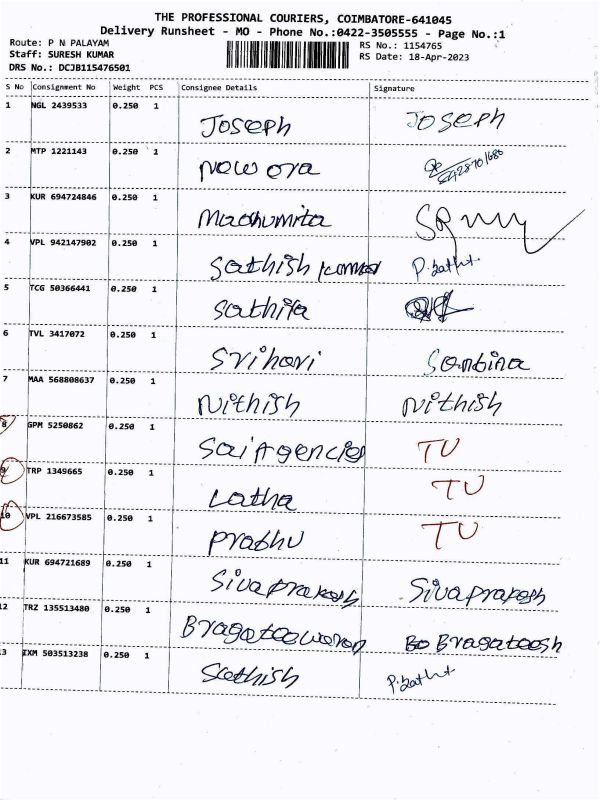 THE PROFESSIONAL COURIERS, COIMBATORE-641045
Delivery Runsheet - MO - Phone No.:0422-3505555 - Page No.:1
Route: P N PALAYAM
Staff: SURESH KUMAR
DRS No.: DCJB115476501
RS No.: 1154765
RS Date: 18-Apr-2023
S No Consignment No Weight PCS Consignee Details Signature
1 NGL 2439533 0.250 1
Joseph Joseph
2 MTP 1221143 0.250 1
New ora
3 KUR 694724846 0.250 1
Madhumita
4 VPL 942147902 0.250 1
Sathish kumar
5 TCG 50366441 0.250 1
6 TVL 3417072 0.250 1
Srihari
7 MAA 568808637 0.250 1
Nithish Nithish
8 GPM 5250862 0.250 1
Sai Agencies TU
9 TRP 1349665 0.250 1
Latha TU
10 VPL 216673585 0.250 1
Prabhu TU
11 KUR 694721689 0.250 1
Sivaprakash Sivaprakash
12 TRZ 135513480 0.250 1
3 IXM 503513238 0.250 1
Sathish